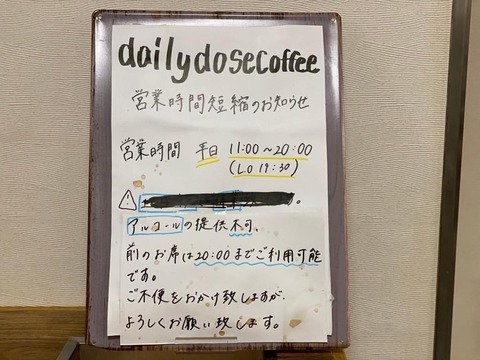 dailydosecoffee
営業時間短縮のお知らせ
営業時間 平日 11:00~20:00
(L.O 19:30)
⚠ 。
アルコールの提供不可、
前のお席は20:00までご利用可能
です。
ご不便をおかけ致しますが、
よろしくお願い致します。